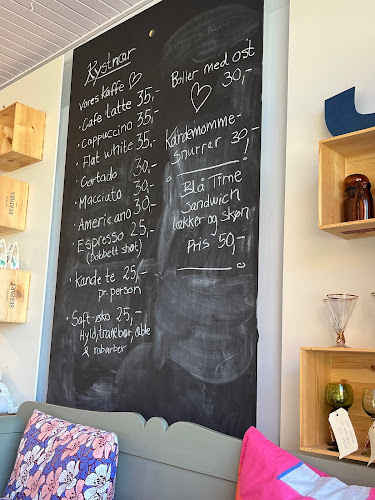 Kystnær
Vores kaffe ♡
· Cafe latte 35,-
· Cappuccino 35,-
· Flat white 35,-
· Cortado 30,-
· Macciato 30,-
· Americano 30,-
· Espresso 25,-
(Dobbelt shot)
· kande te 25,-
pr. person
· Saft-øko 25,-
Hyld, tranebær, æble
& rabarber
Boller med ost
♡ 30,-
Kardemomme-
snurrer 30,-
Blå Time
Sandwich
lækker og skøn
Pris 50,-